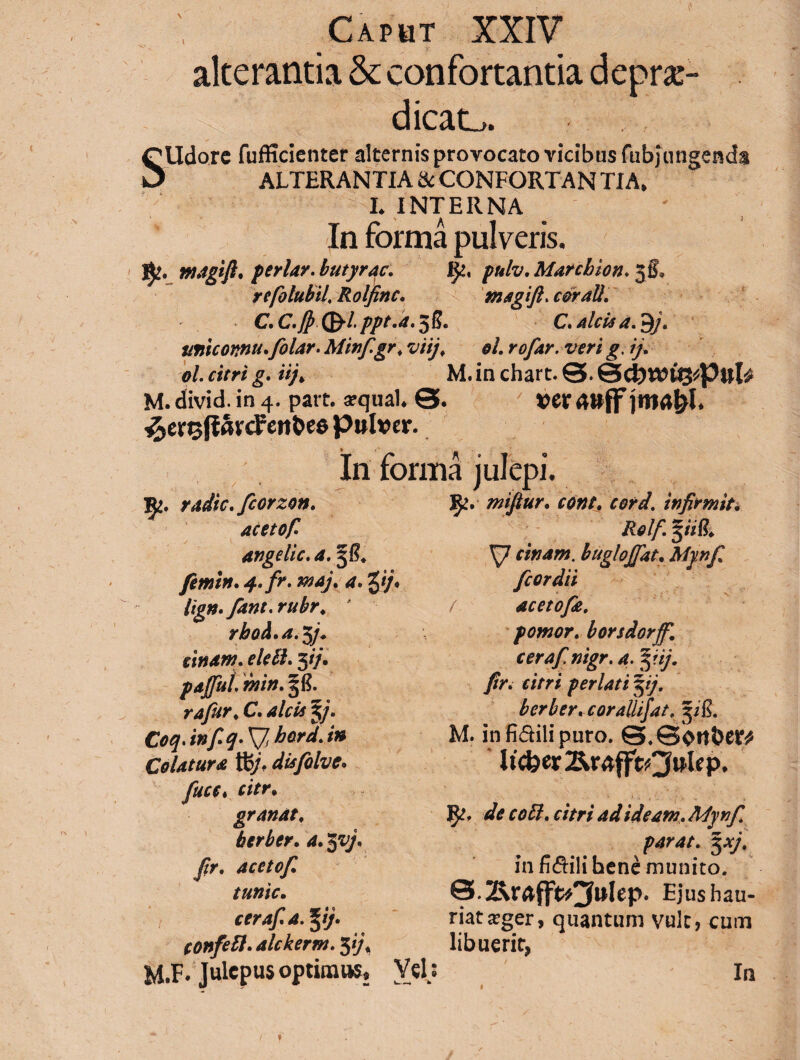 CAPUT XXIV
alterantia & confortantia depræ-
dicat.
SUdore ſufficienter alternis provocato vicibus ſubjungenda
ALTERANTIA & CONFORTANTIA.
I. INTERNA
In formâ pulveris.
℞. magiſt. perlar. butyrac.
reſolubil. Rolfinc.
C. C. ppt. a. ʒß.
unicornu. ſolar. Minſ. gr. viij.
ol. citri g. iij.
M. divid. in 4. part. æqual. S.
Hertzſtärckendes Pulver.
℞. pulv. Marchion. ʒß.
magiſt. corall.
C. alcis a. ℈j.
ol. roſar. veri g. ij.
M. in chart. S. Schwitz-Pul-
ver auff jmahl.
In formâ julepi.
℞. radic. ſcorzon.
acetoſ.
angelic. a. ℥ß.
ſemin. 4. fr. maj. a. ʒij.
lign. ſant. rubr.
rhod. a. ʒj.
cinam. elect. ʒij.
paſſul. min. ℥ß.
raſur. C. alcis ℥j.
Coq. inſ. q. ▽ hord. in
Colaturæ ℔j. diſſolve.
ſucc. citr.
granat.
berber. a. ʒvj.
ſir. acetoſ.
tunic.
ceraſ. a. ℥ij.
confect. alckerm. ʒij.
M. F. Julepus optimus. Vel:
℞. miſtur. cont. cord. infirmit.
Rolf. ℥iiß.
▽ cinam. bugloſſat. Mynſ.
ſcordii
acetoſæ.
pomor. borsdorff.
ceraſ. nigr. a. ℥iij.
ſir. citri perlati ℥ij.
berber. coralliſat. ℥iß.
M. in fictili puro. S. Sonder-
licher Krafft-Julep.
℞. de coct. citri ad ideam. Mynſ.
parat. ℥xj.
in fictili benè munito.
S. Krafft-Julep. Ejus hau-
riat æger, quantum vult, cum
libuerit,
In